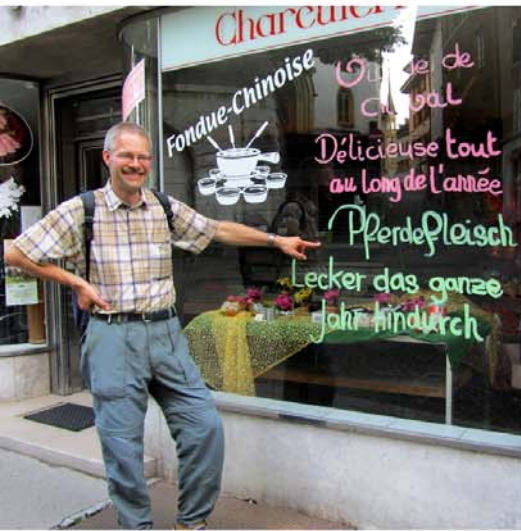 Fondue-Chinoise
de
Délicieuse tout
au long de l'année
Pferdefleisch
Lecker das ganze
Jahr hindurch